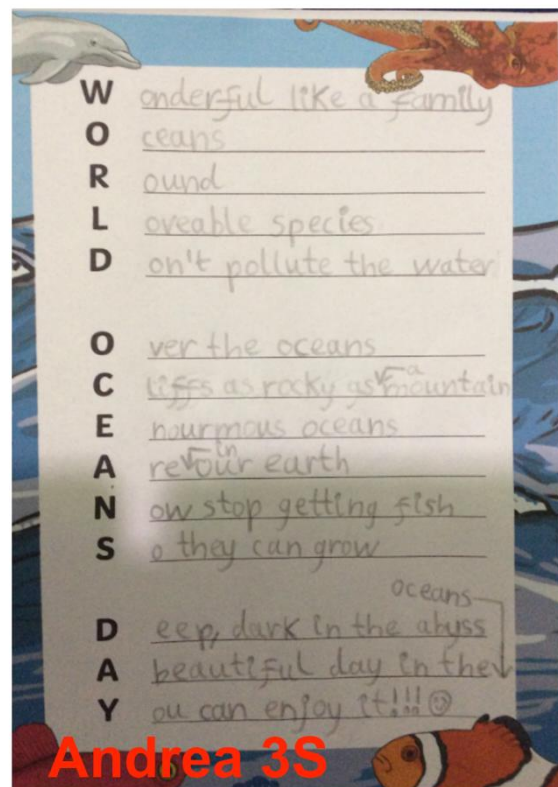 Wonderful like a family
Oceans
Round
Loveable species
Don't pollute the water
Over the oceans
Cliffs as rocky as a mountain
Enourmous oceans
Are in our earth
Now stop getting fish
So they can grow
oceans
Deep, dark in the abyss
A beautiful day in the
You can enjoy it!!!☺
Andrea 3S